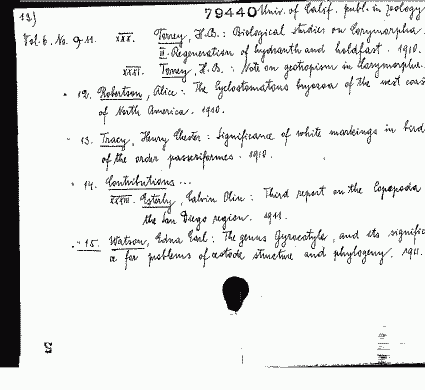 19)
79440 Univ. of Calif. publ. in Zoology
Vol. 6. No. 9-11. XXX. Torrey, H.B.: Biological Studies on Corymorpha.
II. Regeneration of hydranth and holdfast. 1910.
XXXI. Torrey, H.B.: Note on geotropism in Corymorpha.
" 12. Robertson, Alice: The Cyclostomatous bryozoa of the west coas
of North America. 1910.
" 13. Tracy, Henry Chester: Significance of white markings in bird
of the order passeriformes. 1910.
" 14. Contributions...
Esterly, Calvin Olin: Third report on the Copepoda
the San Diego region. 1911.
" 15. Watson, Edna Earl: The genus Gyrocotyle, and its signific
for problems of cestode structure and phylogeny. 1911.